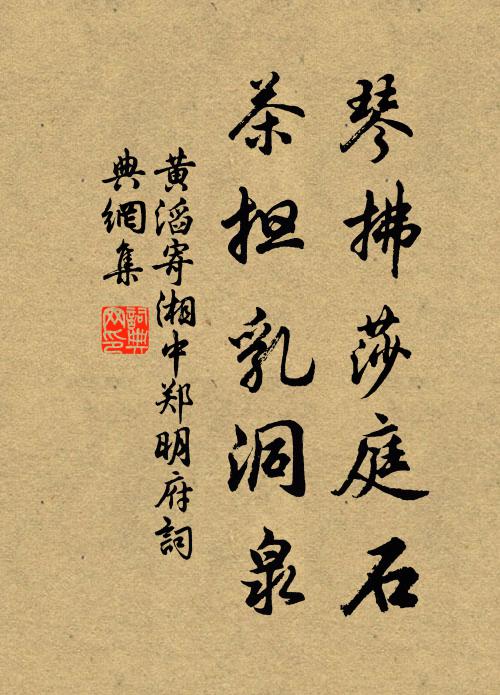 琴拂莎庭石
茶担乳洞泉
黄滔寄湘中郑明府詞
典網集
詞典
网印